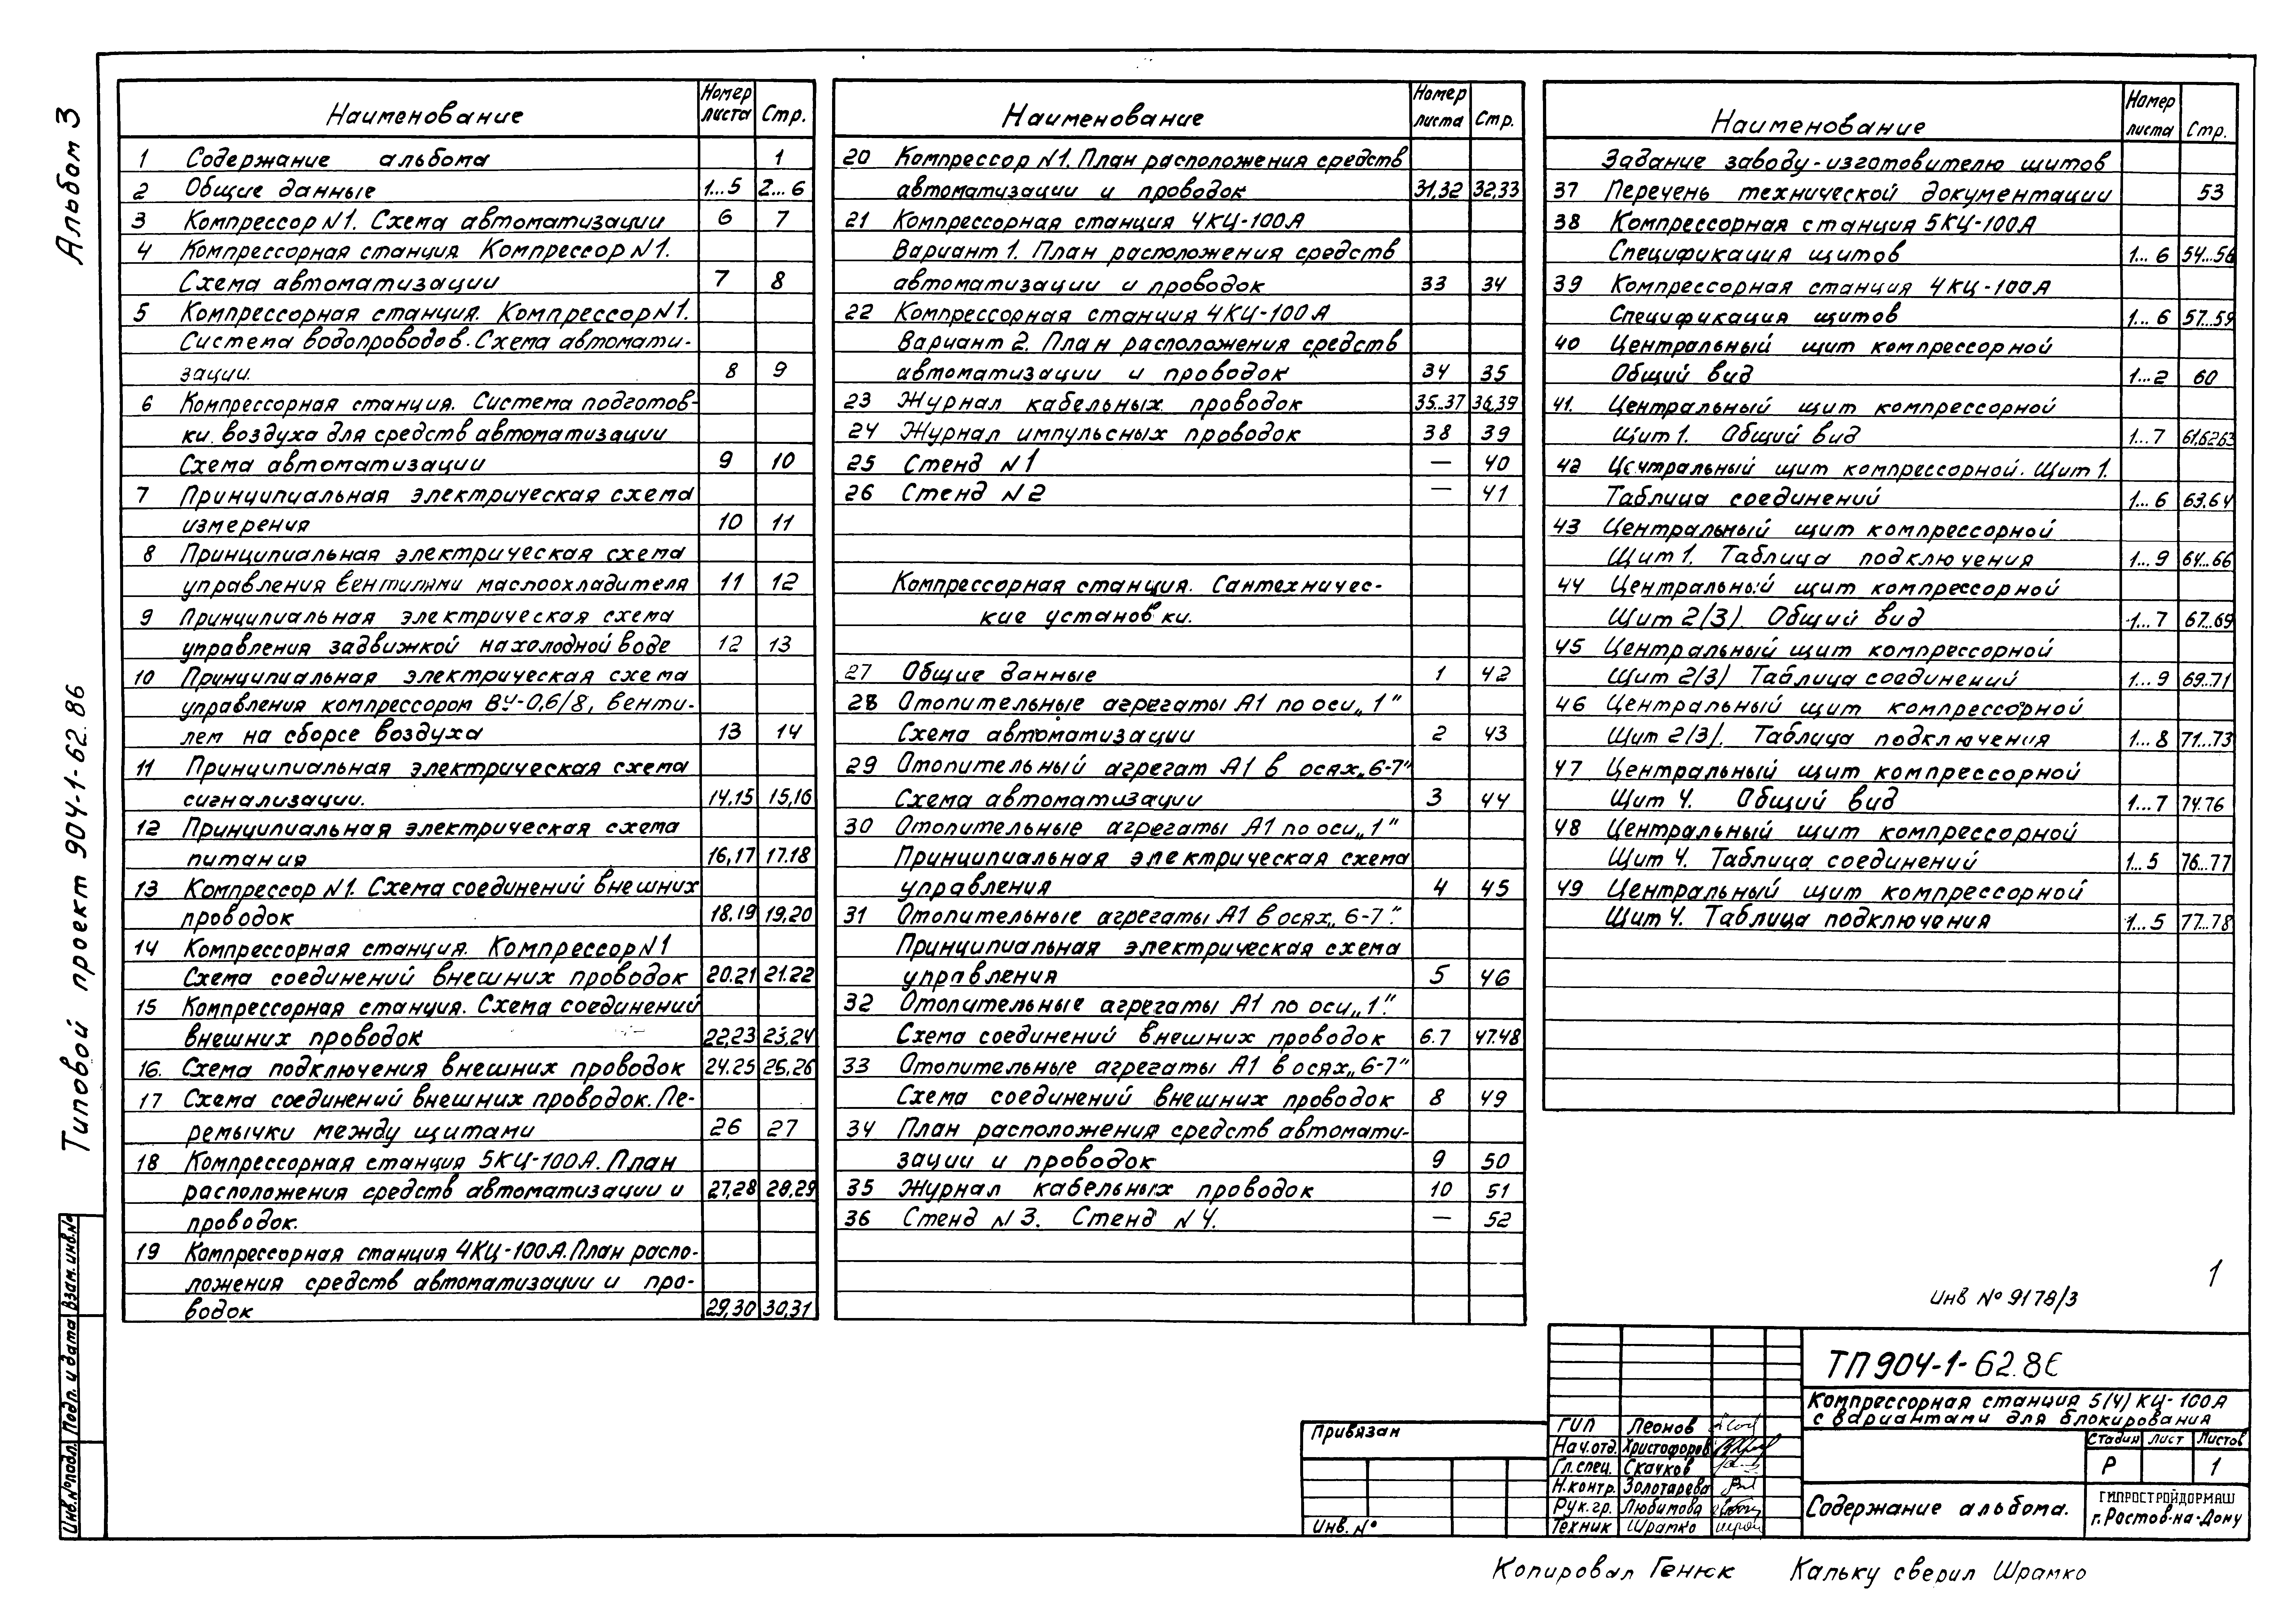 Альбом 3
Типовой проект 904-1-62.86
Наименование Номер листа Стр.
1 Содержание альбома 1
2 Общие данные 1...5 2...6
3 Компрессор N1. Схема автоматизации 6 7
4 Компрессорная станция. Компрессор N1.
Схема автоматизации 7 8
5 Компрессорная станция. Компрессор N1.
Система водопроводов. Схема автомати-
зации. 8 9
6 Компрессорная станция. Система подготов-
ки воздуха для средств автоматизации
Схема автоматизации 9 10
7 Принципиальная электрическая схема
измерения 10 11
8 Принципиальная электрическая схема
управления вентилями маслоохладителя 11 12
9 Принципиальная электрическая схема
управления задвижкой на холодной воде 12 13
10 Принципиальная электрическая схема
управления компрессором ВУ-0,6/8, венти-
лем на сборсе воздуха 13 14
11 Принципиальная электрическая схема
сигнализации. 14,15 15,16
12 Принципиальная электрическая схема
питания 16,17 17.18
13 Компрессор N1. Схема соединений внешних
проводок 18.19 19,20
14 Компрессорная станция. Компрессор N1
Схема соединений внешних проводок 20.21 21.22
15 Компрессорная станция. Схема соединений
внешних проводок 22,23 23,24
16. Схема подключения внешних проводок 24.25 25,26
17 Схема соединений внешних проводок. Пе-
ремычки между щитами 26 27
18 Компрессорная станция 5КЦ-100А. План
расположения средств автоматизации и 27,28 28,29
проводок.
19 Компрессорная станция 4КЦ-100А. План распо-
ложения средств автоматизации и про-
водок 29,30 30,31
Наименование Номер листа Стр.
20 Компрессор N1. План расположения средств
автоматизации и проводок 31,32 32,33
21 Компрессорная станция 4КЦ-100А
Вариант 1. План расположения средств
автоматизации и проводок 33 34
22 Компрессорная станция 4КЦ-100А
Вариант 2. План расположения средств
автоматизации и проводок 34 35
23 Журнал кабельных проводок 35..37 36,39
24 Журнал импульсных проводок 38 39
25 Стенд N1 — 40
26 Стенд N2 — 41
Компрессорная станция. Сантехничес-
кие установки.
27 Общие данные 1 42
28 Отопительные агрегаты А1 по оси „1"
Схема автоматизации 2 43
29 Отопительный агрегат А1 в осях „6-7"
Схема автоматизации 3 44
30 Отопительные агрегаты А1 по оси „1"
Принципиальная электрическая схема
управления 4 45
31 Отопительные агрегаты А1 в осях „6-7".
Принципиальная электрическая схема
управления 5 46
32 Отопительные агрегаты А1 по оси „1".
Схема соединений внешних проводок 6.7 47.48
33 Отопительные агрегаты А1 в осях „6-7"
Схема соединений внешних проводок 8 49
34 План расположения средств автомати-
зации и проводок 9 50
35 Журнал кабельных проводок 10 51
36 Стенд N3. Стенд N4. — 52
Наименование Номер листа Стр.
Задание заводу-изготовителю щитов
37 Перечень технической документации 53
38 Компрессорная станция 5КЦ-100А
Спецификация щитов 1...6 54...56
39 Компрессорная станция 4КЦ-100А
Спецификация щитов 1...6 57...59
40 Центральный щит компрессорной
Общий вид 1...2 60
41. Центральный щит компрессорной
Щит 1. Общий вид 1...7 61,62,63
42 Центральный щит компрессорной. Щит 1.
Таблица соединений 1...6 63.64
43 Центральный щит компрессорной
Щит 1. Таблица подключения 1...9 64...66
44 Центральный щит компрессорной
Щит 2/3/. Общий вид 1...7 67...69
45 Центральный щит компрессорной
Щит 2/3/ Таблица соединений 1...9 69..71
46 Центральный щит компрессорной
Щит 2/3/. Таблица подключения 1...8 71...73
47 Центральный щит компрессорной
Щит 4. Общий вид 1...7 74.76
48 Центральный щит компрессорной
Щит 4. Таблица соединений 1...5 76...77
49 Центральный щит компрессорной
Щит 4. Таблица подключения 1...5 77...78
1
Инв N° 9178/3
ТП 904-1-62.86
Компрессорная станция 5/4/КЦ-100А
с вариантами для блокирования
Стадия Лист Листов
Р 1
Содержание альбома.
ГИПРОСТРОЙДОРМАШ
г. Ростов-на-Дону
ГИП Леонов
Нач.отд. Христофоров
Гл.спец. Скачков
Н.контр. Золотарева
Рук.гр. Любимова
Техник Шрамко
Привязан
Инв. N°
Взам. инв. N°
Подп. и дата
Инв. N° подл.
Копировал Генюк Кальку сверил Шрамко